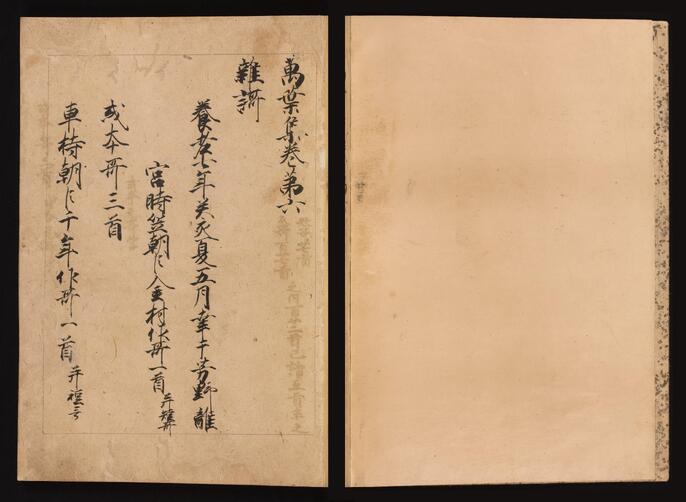 萬葉集巻第六
雜謌
養老七年癸亥夏五月幸于芳野離
宮時笠朝臣金村作哥一首 并短哥
或本哥三首
車持朝臣千年作哥一首 并短哥